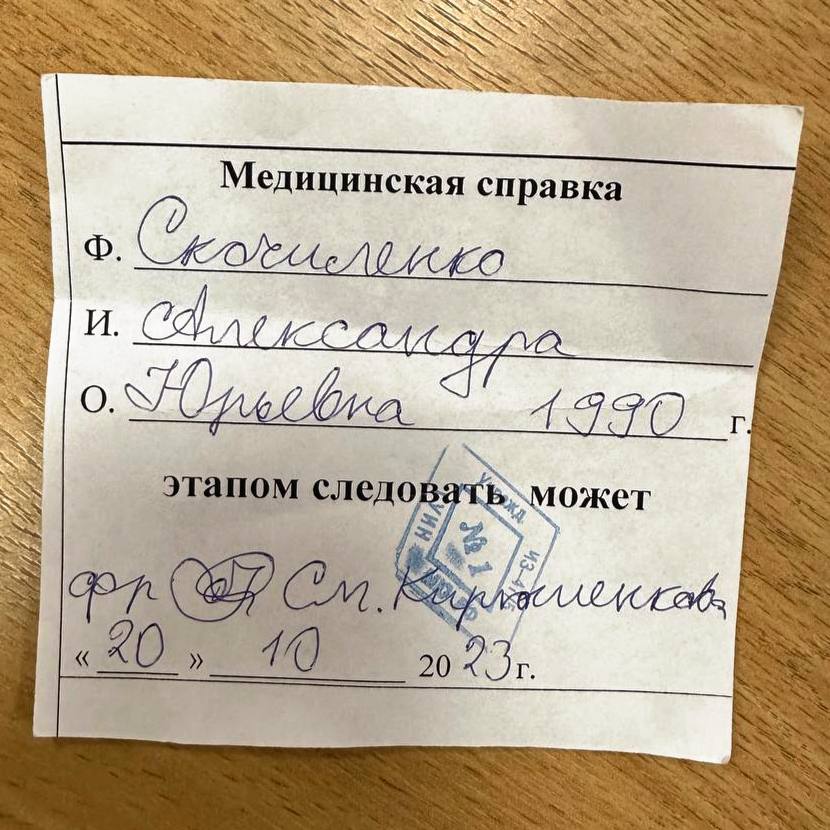 Медицинская справка
Ф. Скочиленко
И. Александра
О. Юрьевна 1990 г.
этапом следовать может
фр См. Кирюшенкова
« 20 » 10 20 23 г.
№ 1